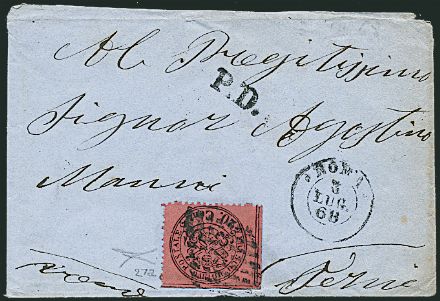 Al Pregiatissimo
P.D.
Signor Agostino
Manni
ROMA
3
LUG
68
272
Terni